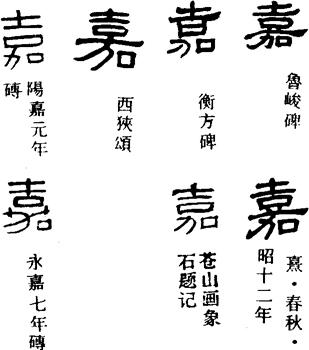 嘉
魯峻碑
嘉
衡方碑
嘉
西狹頌
嘉
陽嘉元年
磚
嘉
熹·春秋·
昭十二年
嘉
苍山画象
石题记
嘉
永嘉七年磚